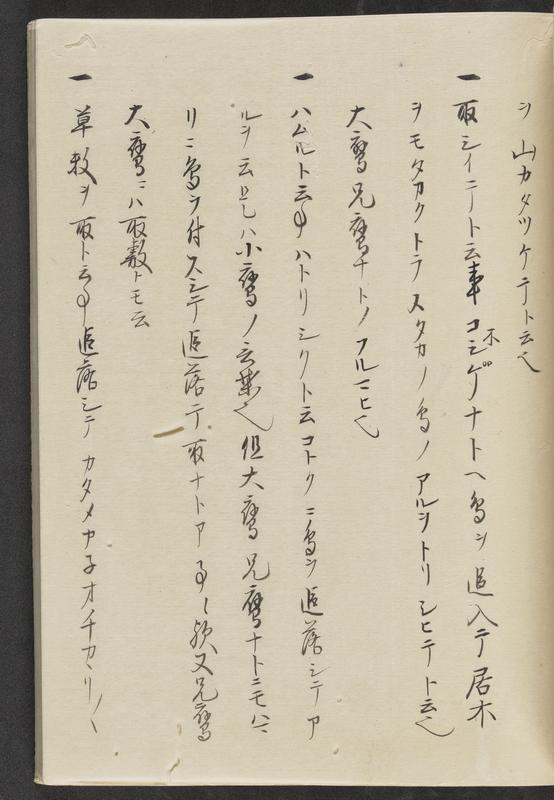 シ山カタツケテト云也
一取シイテト云事コミゲナトヘ鳥ヲ追入テ居木
木
ヲモタカクトテスタカノ鳥ノアルヲトリシヒテト云也
大鷹兄鷹ナトノフルマヒ也
一ハムルト云事ハトリシクト云コトクニ鳥ヲ追落シテア
ルヲ云但シハ小鷹ノ云葉也但大鷹兄鷹ナトニモハニ
リニ鳥ヲ付スシテ追落テ取ナトア事ハ歟又兄鷹
大鷹ニハ取敷トモ云
一草敷ヲ取ト云事追落シテカタメヤ子オチカヽリ〱